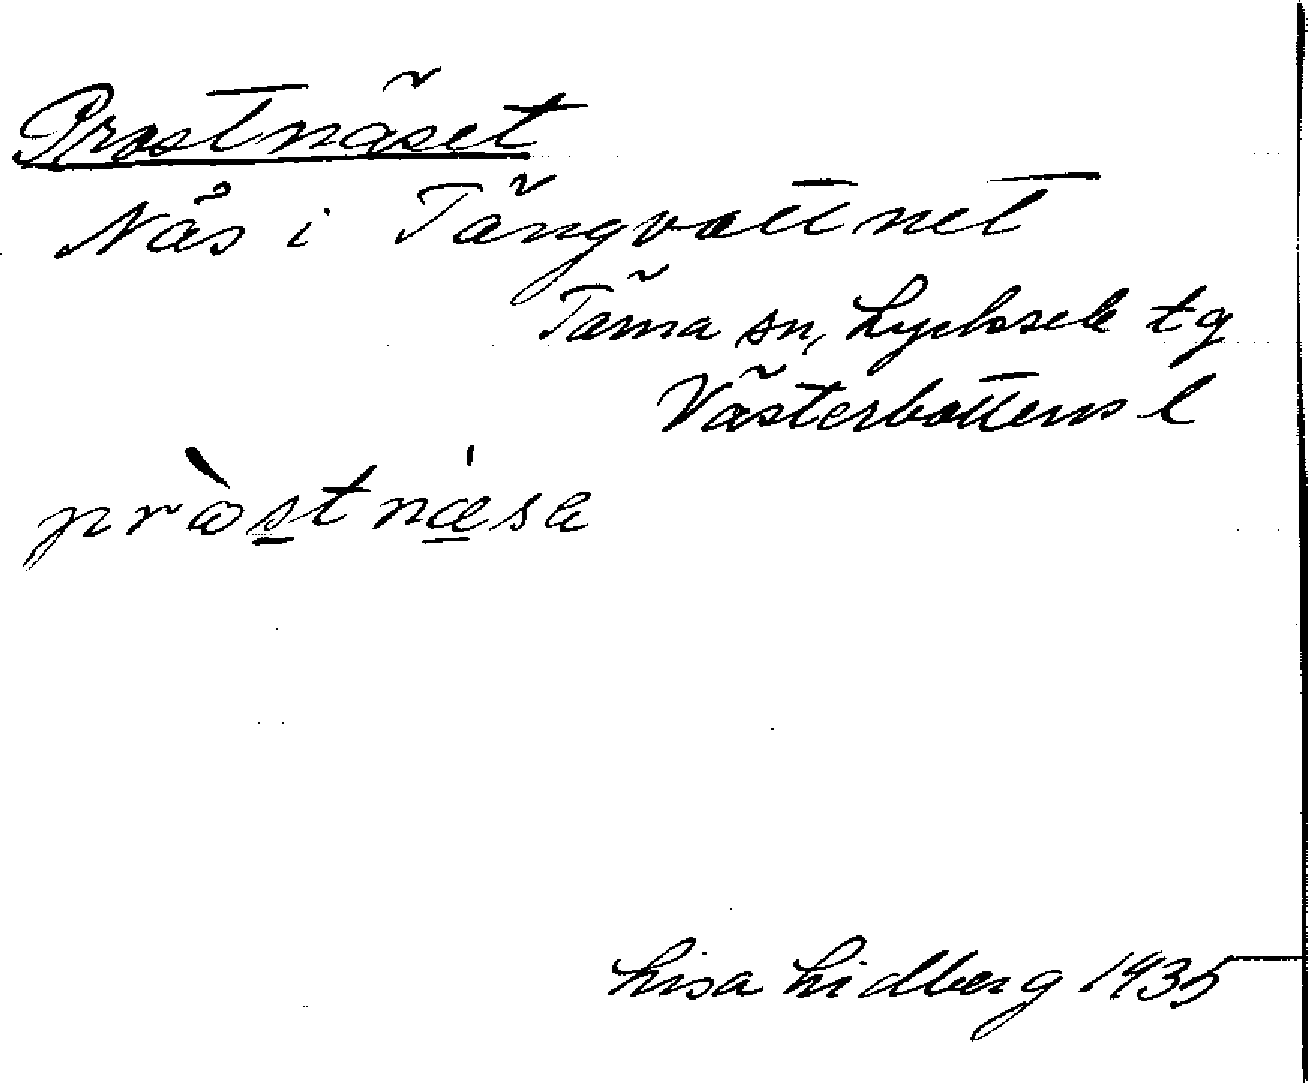 Prostnäset
Näs i Tängvattnet
Tärna sn, Lycksele tg
Västerbottens l
pròstnǽsa
Lisa Lidberg 1935